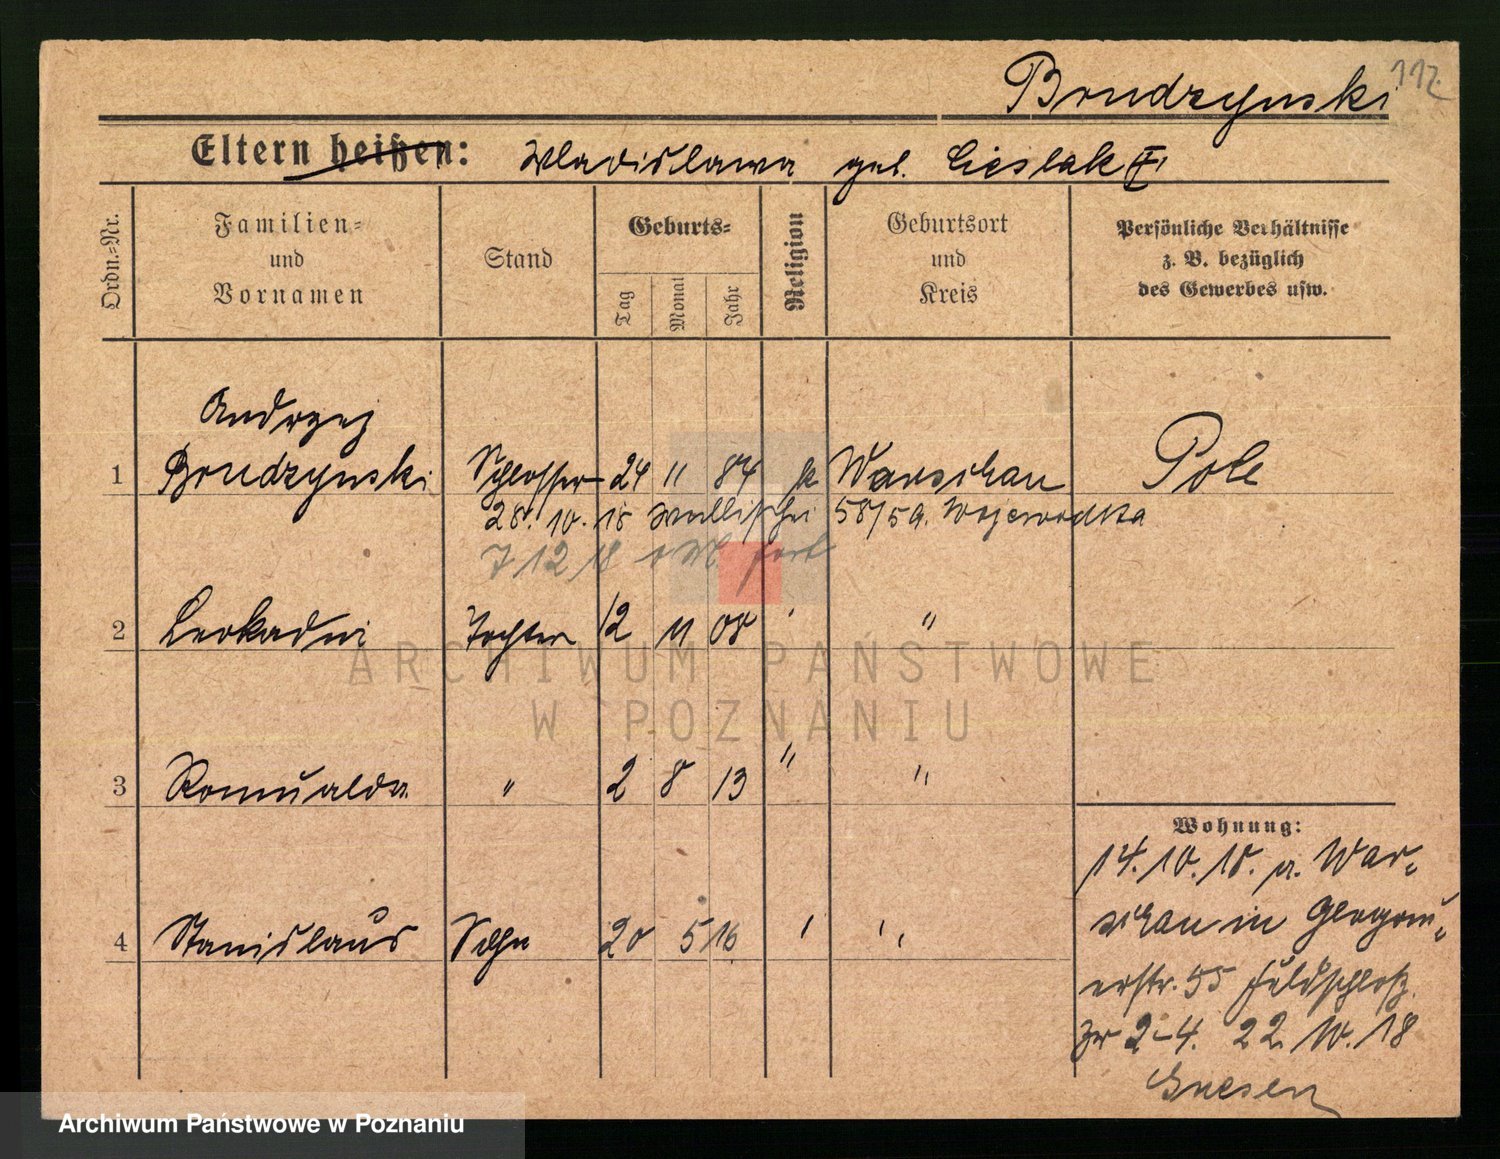 Brudzynski
112.
Eltern heißen: Wladislawa geb. Cieslak
Ordn.=Nr.
Familien=
und
Vornamen
Stand
Geburts=
Tag
Monat
Jahr
Religion
Geburtsort
und
Kreis
Persönliche Verhältnisse
z. B. bezüglich
des Gewerbes usw.
Andrzej
1 Brudzynski Schlosser 24 11 84 k Warschau Pole
28. 10. 18 Wallischei 58/59. Wojewodka
7 12 18 fort
2 Leokadia Tochter 12 11 08 ' "
ARCHIWUM PAŃSTWOWE
W POZNANIU
3 Romualda " 2 8 13 " "
Wohnung:
14. 10. 18. a. War-
schau in Glogau-
erstr. 55 Feldschloß
4 Stanislaus Sohn 20 5 16 ' "
zr 2-4. 22. 10. 18
Gnesen
Archiwum Państwowe w Poznaniu